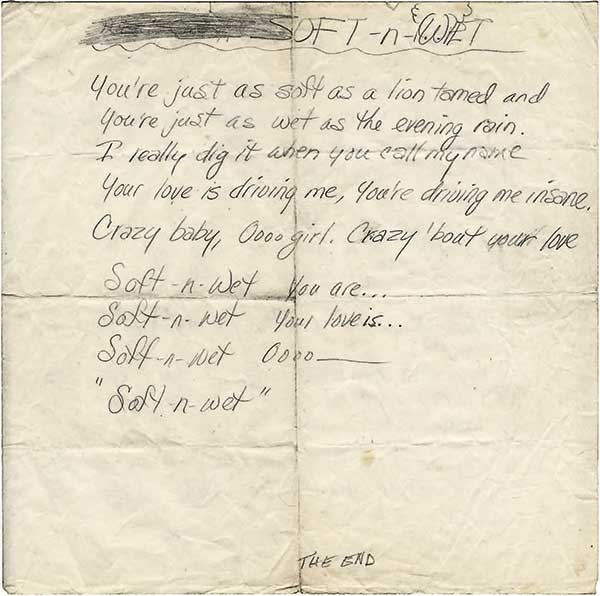 SOFT-n-WET
You're just as soft as a lion tamed and
You're just as wet as the evening rain.
I really dig it when you call my name
Your love is driving me, You're driving me insane.
Crazy baby, Oooo girl. Crazy 'bout your love
Soft-n-wet You are...
Soft-n-wet Your love is...
Soff-n-wet Oooo
"Soft-n-wet"
THE END